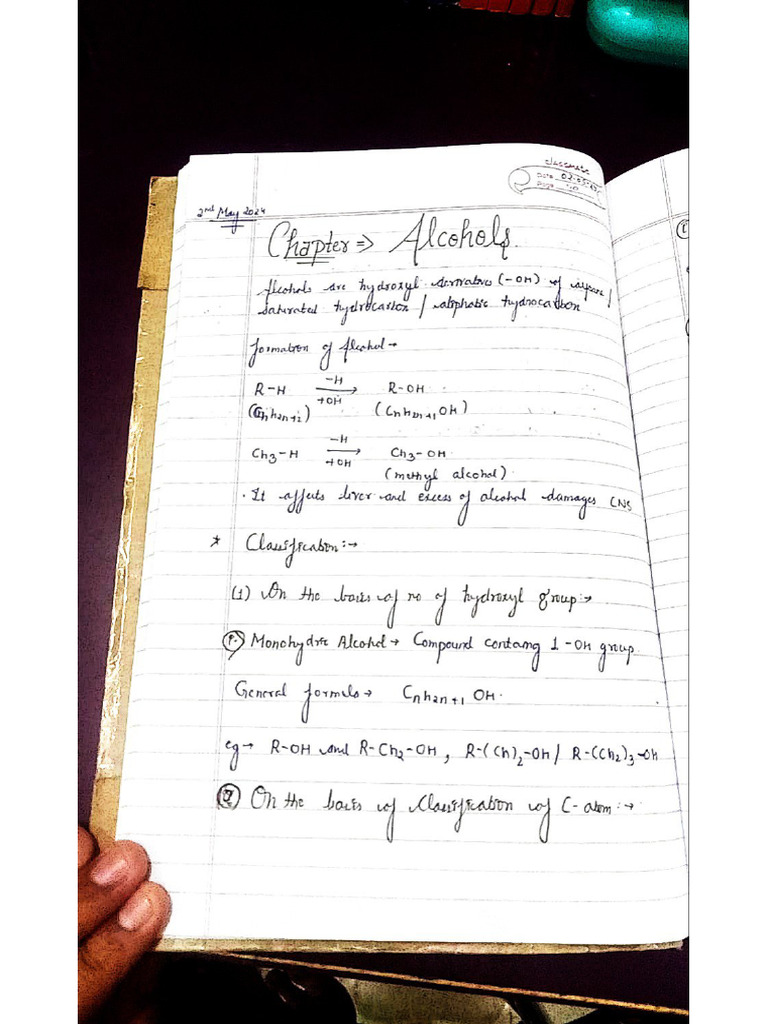 classmate
Date 02-05-24
Page
2nd May 2024
Chapter => Alcohols.
Alcohols are hydroxyl derivatives (-OH) of alkane /
saturated hydrocarbon / aliphatic hydrocarbon
formation of Alcohol →
R-H -H +OH → R-OH
(CnH2n+2) (CnH2n+1 OH)
Ch3-H -H +OH → Ch3-OH
(methyl alcohol)
· It affects liver and excess of alcohol damages CNS
* Classification:→
(1) On the basis of no of hydroxyl group:→
Monohydric Alcohol → Compound containg 1-OH group.
General formula → CnH2n+1 OH.
eg → R-OH and R-Ch2-OH, R-(Ch)2-OH / R-(Ch2)3-OH
On the basis of Classification of C-atom:→